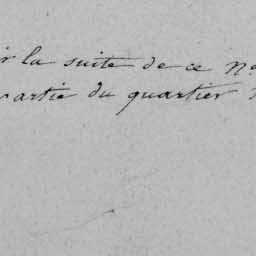 r la suite de ce No
partie du quartier